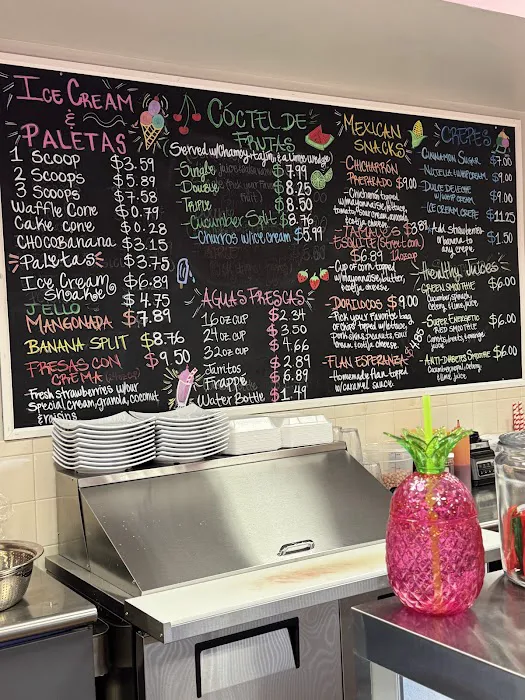 ICE CREAM
&
PALETAS
1 Scoop $3.59
2 Scoops $5.89
3 Scoops $7.58
Waffle Cone $0.79
Cake cone $0.28
CHOCOBanana $3.15
Paletas $3.75
Ice Cream Shake $6.89
JELLO $4.75
MANGONADA $7.89
BANANA SPLIT $8.76
FRESAS CON CREMA $9.50
Fresh strawberries w/our
Special cream, granola, coconut
& raisins
CÓCTEL DE
FRUTAS
Served w/Chamoy, Tajin, & a lime wedge
Single $7.99
Double $8.25
Triple $8.50
Cucumber Split $8.76
Churros w/ice cream $5.99
AGUAS FRESCAS
16 oz cup $2.34
24 oz cup $3.50
32 oz cup $4.66
Jarritos $2.89
Frappe $6.89
Water Bottle $1.49
MEXICAN
SNACKS
-CHICHARRÓN
PREPARADO $9.00
Chicharrón topped
w/mayonnaise, lettuce,
tomato, sour cream, avocado,
cotija cheese
ESQUITE (Street corn)
$6.89
-Cup of corn topped
w/mayonnaise, butter,
cotija cheese
DORILOCOS $9.00
Pick your favorite bag
of chips topped w/lettuce,
-FLAN ESPERANZA $4.85
-Homemade flan topped
w/caramel sauce
CREPES
-CINNAMON SUGAR $7.00
-NUTELLA W/WHIP CREAM $9.00
-DULCE DE LECHE
W/WHIP CREAM $9.00
-ICE CREAM CREPE $11.25
-Add Strawberries
or banana to
any crepe $1.50
Healthy Juices
-GREEN SMOOTHIE $6.00
Cucumber, spinach,
celery, & lime, juice
-SUPER ENERGETIC
RED SMOOTHIE $6.00
-ANTI-DIABETES SMOOTHIE $6.00
Cucumber, nopal, celery,
& lime juice